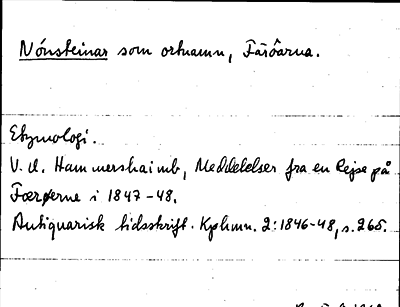 Nónsteinar som ortnamn, Färöarna.
Etymologi.
V. U. Hammershaimb, Meddelelser fra en Rejse på
Færøerne i 1847-48.
Antiquarisk tidsskrift. Kphmn. 2:1846-48, s. 265.